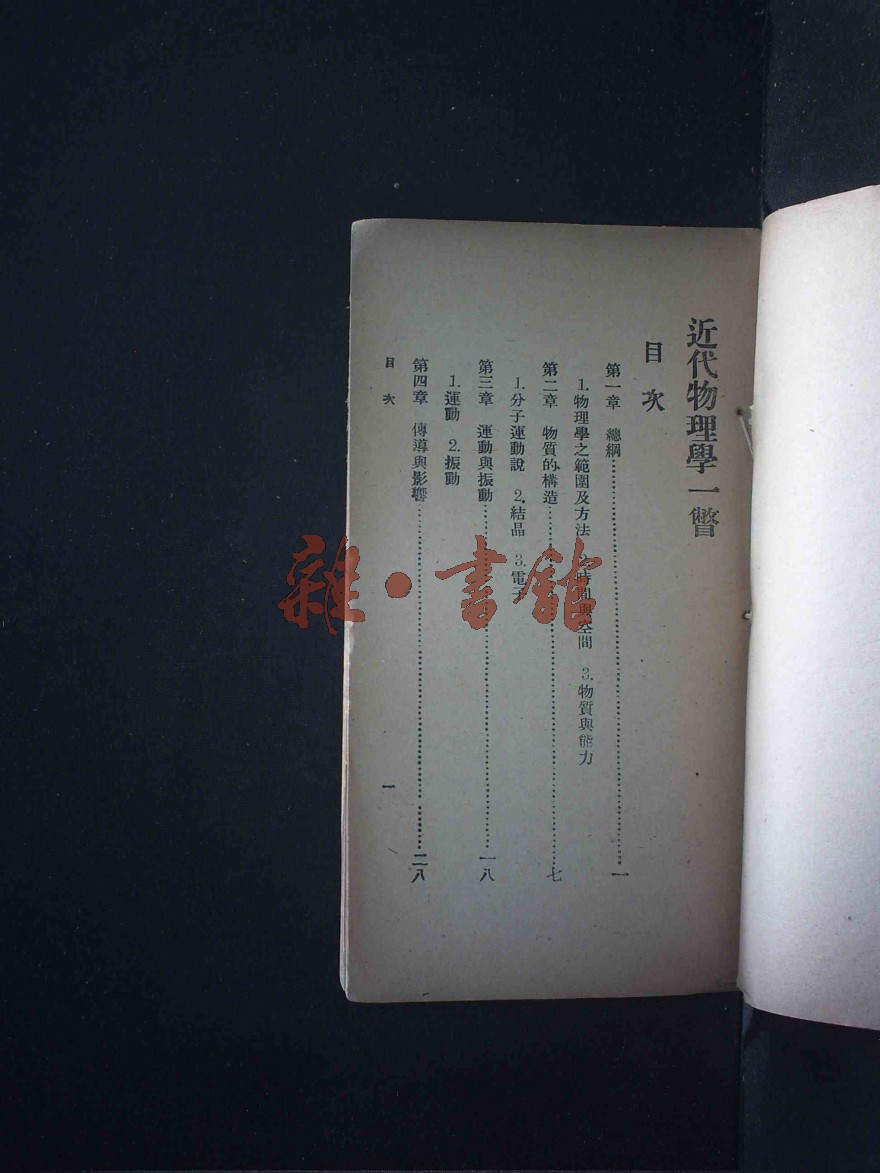 近代物理學一瞥
目次
第一章　總綱……………………一
1.物理學之範圍及方法　2.時間與空間　3.物質與能力
第二章　物質的構造……………………七
1.分子運動說　2.結晶　3.電子
第三章　運動與振動……………………一八
1.運動　2.振動
第四章　傳導與影響……………………二八
目次
一
雜·書館